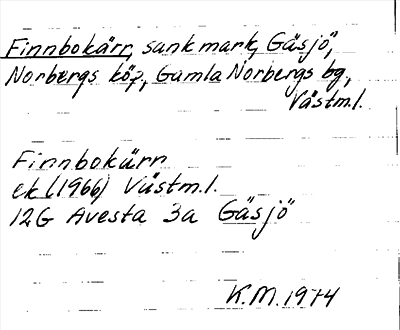 Finnbokärr, sank mark, Gäsjö,
Norbergs köp., Gamla Norbergs bg,
Västm.l.
Finnbokärr
ek (1966) Västm.l.
12G Avesta 3a Gäsjö
K.M. 1974